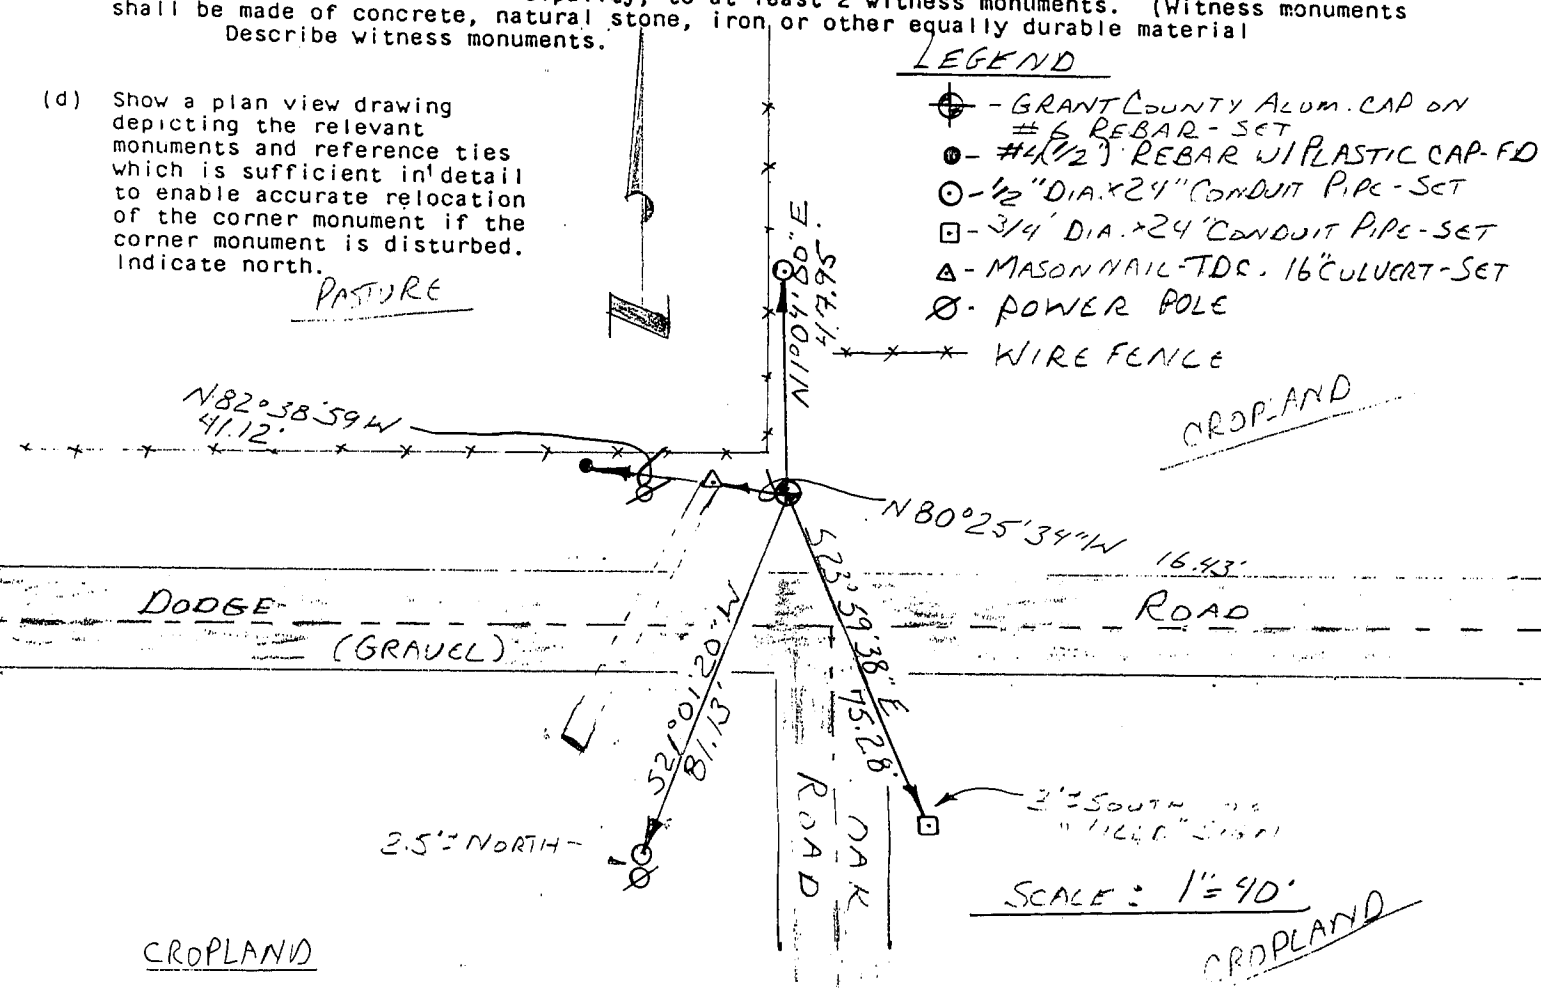 to at least 2 witness monuments. (Witness monuments
shall be made of concrete, natural stone, iron or other equally durable material
Describe witness monuments.
(d) Show a plan view drawing
depicting the relevant
monuments and reference ties
which is sufficient in detail
to enable accurate relocation
of the corner monument if the
corner monument is disturbed.
Indicate north.
LEGEND
- GRANT COUNTY ALUM. CAP ON
#6 REBAR - SET
- #4(1/2") REBAR W/PLASTIC CAP-FD
- 1/2" DIA. x 24" CONDUIT PIPE - SET
- 3/4" DIA. x 24" CONDUIT PIPE - SET
- MASON NAIL - TDC. 16" CULVERT - SET
- POWER POLE
WIRE FENCE
PASTURE
N
N82°38'59"W
41.12'
E
47.65'
CROPLAND
N80°25'34"W 16.43'
DODGE ROAD
(GRAVEL)
S21°01'20"W
81.13'
S23°59'38"E
75.28'
OAK
ROAD
NORTH
3'± SOUTH
SCALE: 1"=40'
CROPLAND
CROPLAND